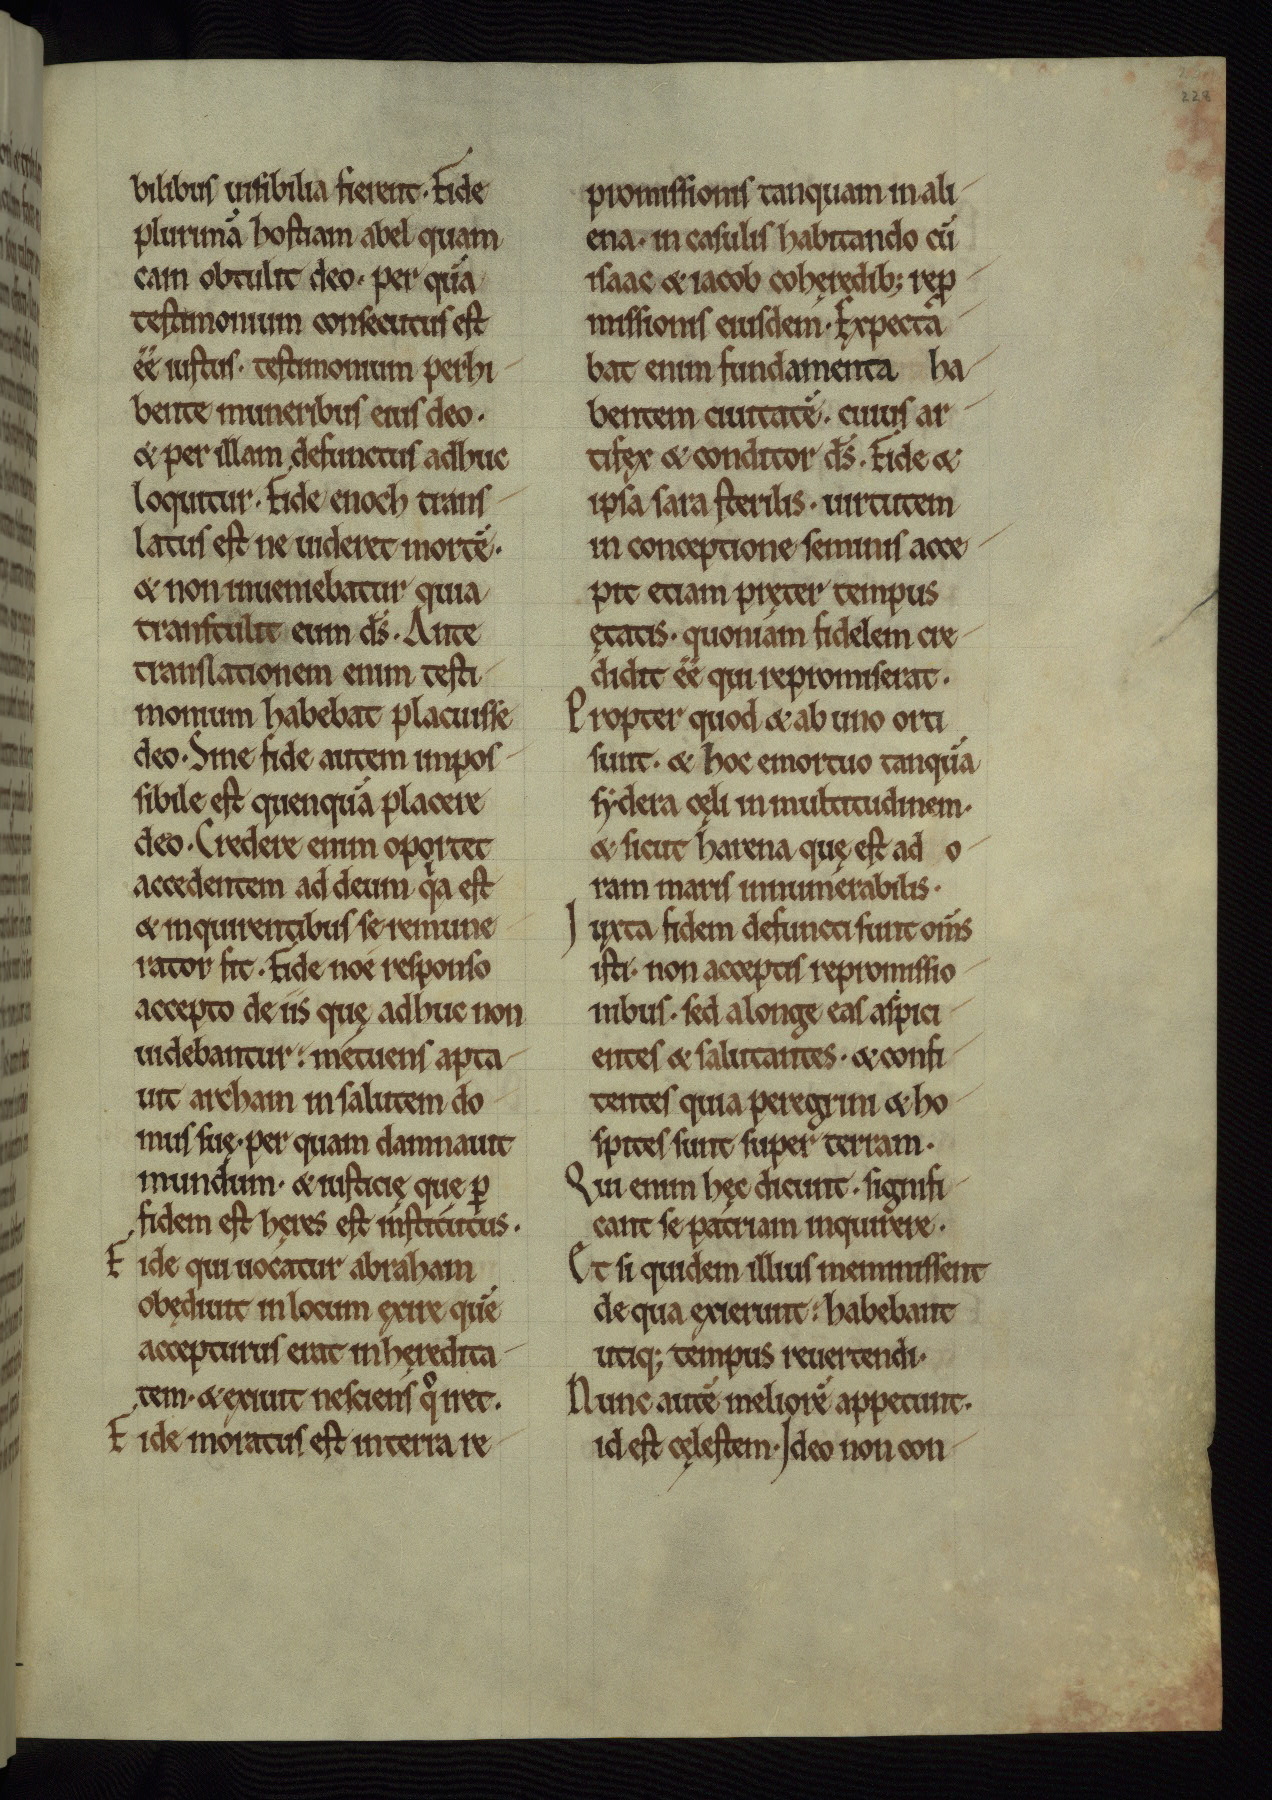 228
bilibus uisibilia fierent. Fide
plurimā hostiam abel quam
cam obtulit deo. per quā
testimonium consecutus est
ēē iustus. testimonium perhi
bente muneribus eius deo.
& per illam defunctus adhuc
loquitur. Fide enoch trans
latus est ne uideret mortē.
& non inueniebatur quia
transtulit eum ds̄. Ante
translationem enim testi
monium habebat placuisse
deo. Sine fide autem impos
sibile est quenquā placere
deo. Credere enim oportet
accedentem ad deum qa est
& inquirentibus se remune
rator sit. Fide noe responso
accepto de iis quę adhuc non
uidebantur: metuens apta
uit archam in salutem do
mus suę. per quam damnauit
mundum. & iusticię que ꝑ
fidem est hęres est institutus.
Fide qui uocatur abraham
obędiuit in locum exire quē
accepturus erat in hęredita
tem. & exiuit nesciens qͦ iret.
Fide moratus est in terra re
promissionis tanquam in ali
ena. in casulis habitando cū
isaac & iacob cohęredib; reꝓ
missionis eiusdem. Expectā
bat enim fundamenta ha
bentem ciuitatē. cuius ar
tifex & conditor ds̄. Fide &
ipsa sara sterilis. uirtutem
in conceptione seminis acce
pit etiam pręter tempus
ętatis. quoniam fidelem cre
didit ēē qui repromiserat.
Propter quod & ab uno orti
sunt. & hoc emortuo tanquā
sẏdera cęli in multitudinem.
& sicut harena quę est ad o
ram maris innumerabilis.
Iuxta fidem defuncti sunt om̄s
isti. non acceptis repromissio
nibus. sed a longe eas aspici
entes & salutantes. & confi
tentes quia peregrini & ho
spites sunt super terram.
Qui enim hęc dicunt. signifi
cant se patriam inquirere.
Et si quidem illius meminissent
de qua exierunt: habebant
utiq; tempus reuertendi.
Nunc autē meliorē appetunt.
id est cęlestem. Ideo non con